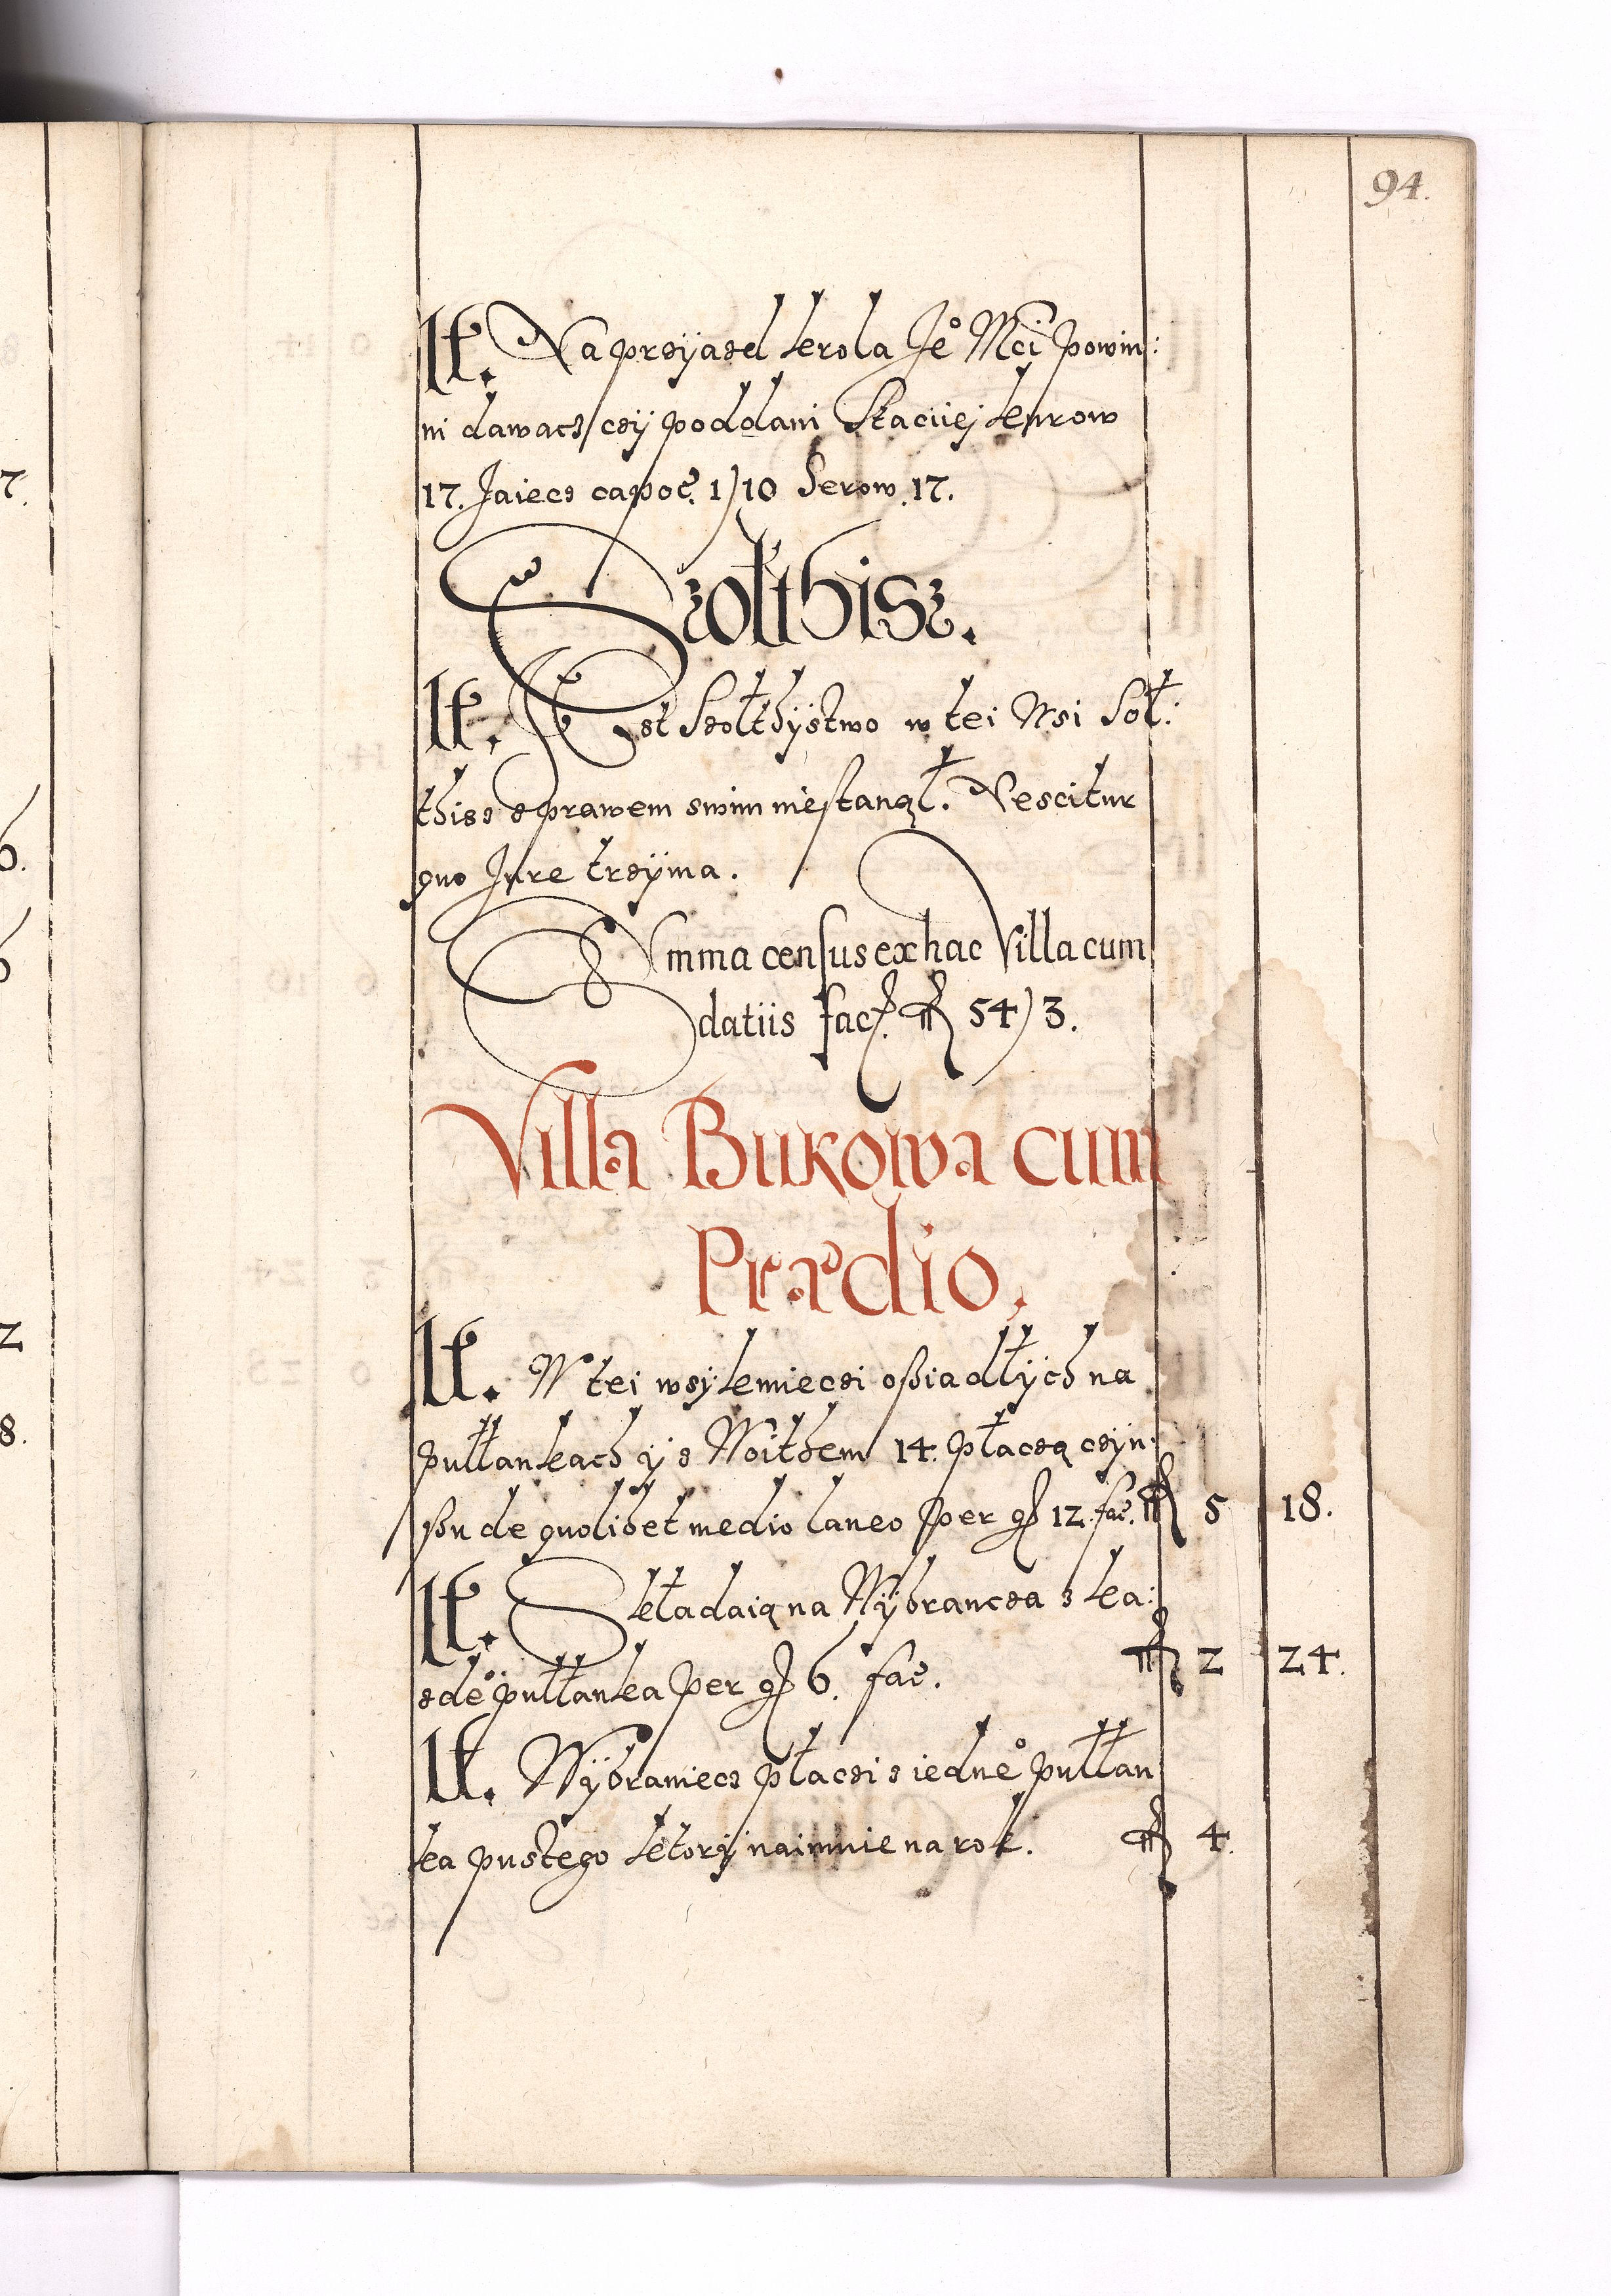 94.
It. Na przyazd krola Je° Mci powin:
ni dawacz czy poddani Staciiej kurow
17. Jaiecz capoc. 1)10 Serow. 17.
Szolthisz.
It. Jest Szolthystwo w tei Wsi Sol:
thisz z prawem swim nie stanął. Vescitur
quo Jure trzyma.
SVmma census ex hac Villa cum
datiis fac. 54)3.
Villa Bukowa cum
Prædio.
It. W tei wsy kmieczi oßiadłych na
pułłankach y z Woithem 14. płaczą czyn:
ßu de quolibet medio laneo per g 12. fac. 5 18.
It. Składaią na Wybrancza z ka:
zde° pułłanka per g 6. fac. 2 24.
It. Wybraniecz płaczi z iedne° pułłan
ka pustego ktory naimuie na rok. 4.
7.
6.
2
8.